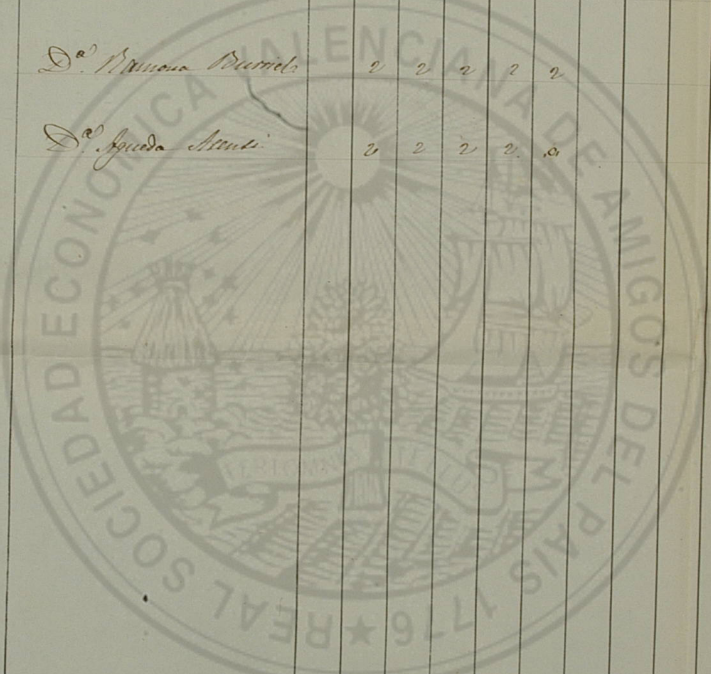 Dª Ramona Burriel 2 2 2 2 2
Dª Agueda Asensi 2 2 2 2
REAL SOCIEDAD ECONOMICA VALENCIANA DE AMIGOS DEL PAIS 1776